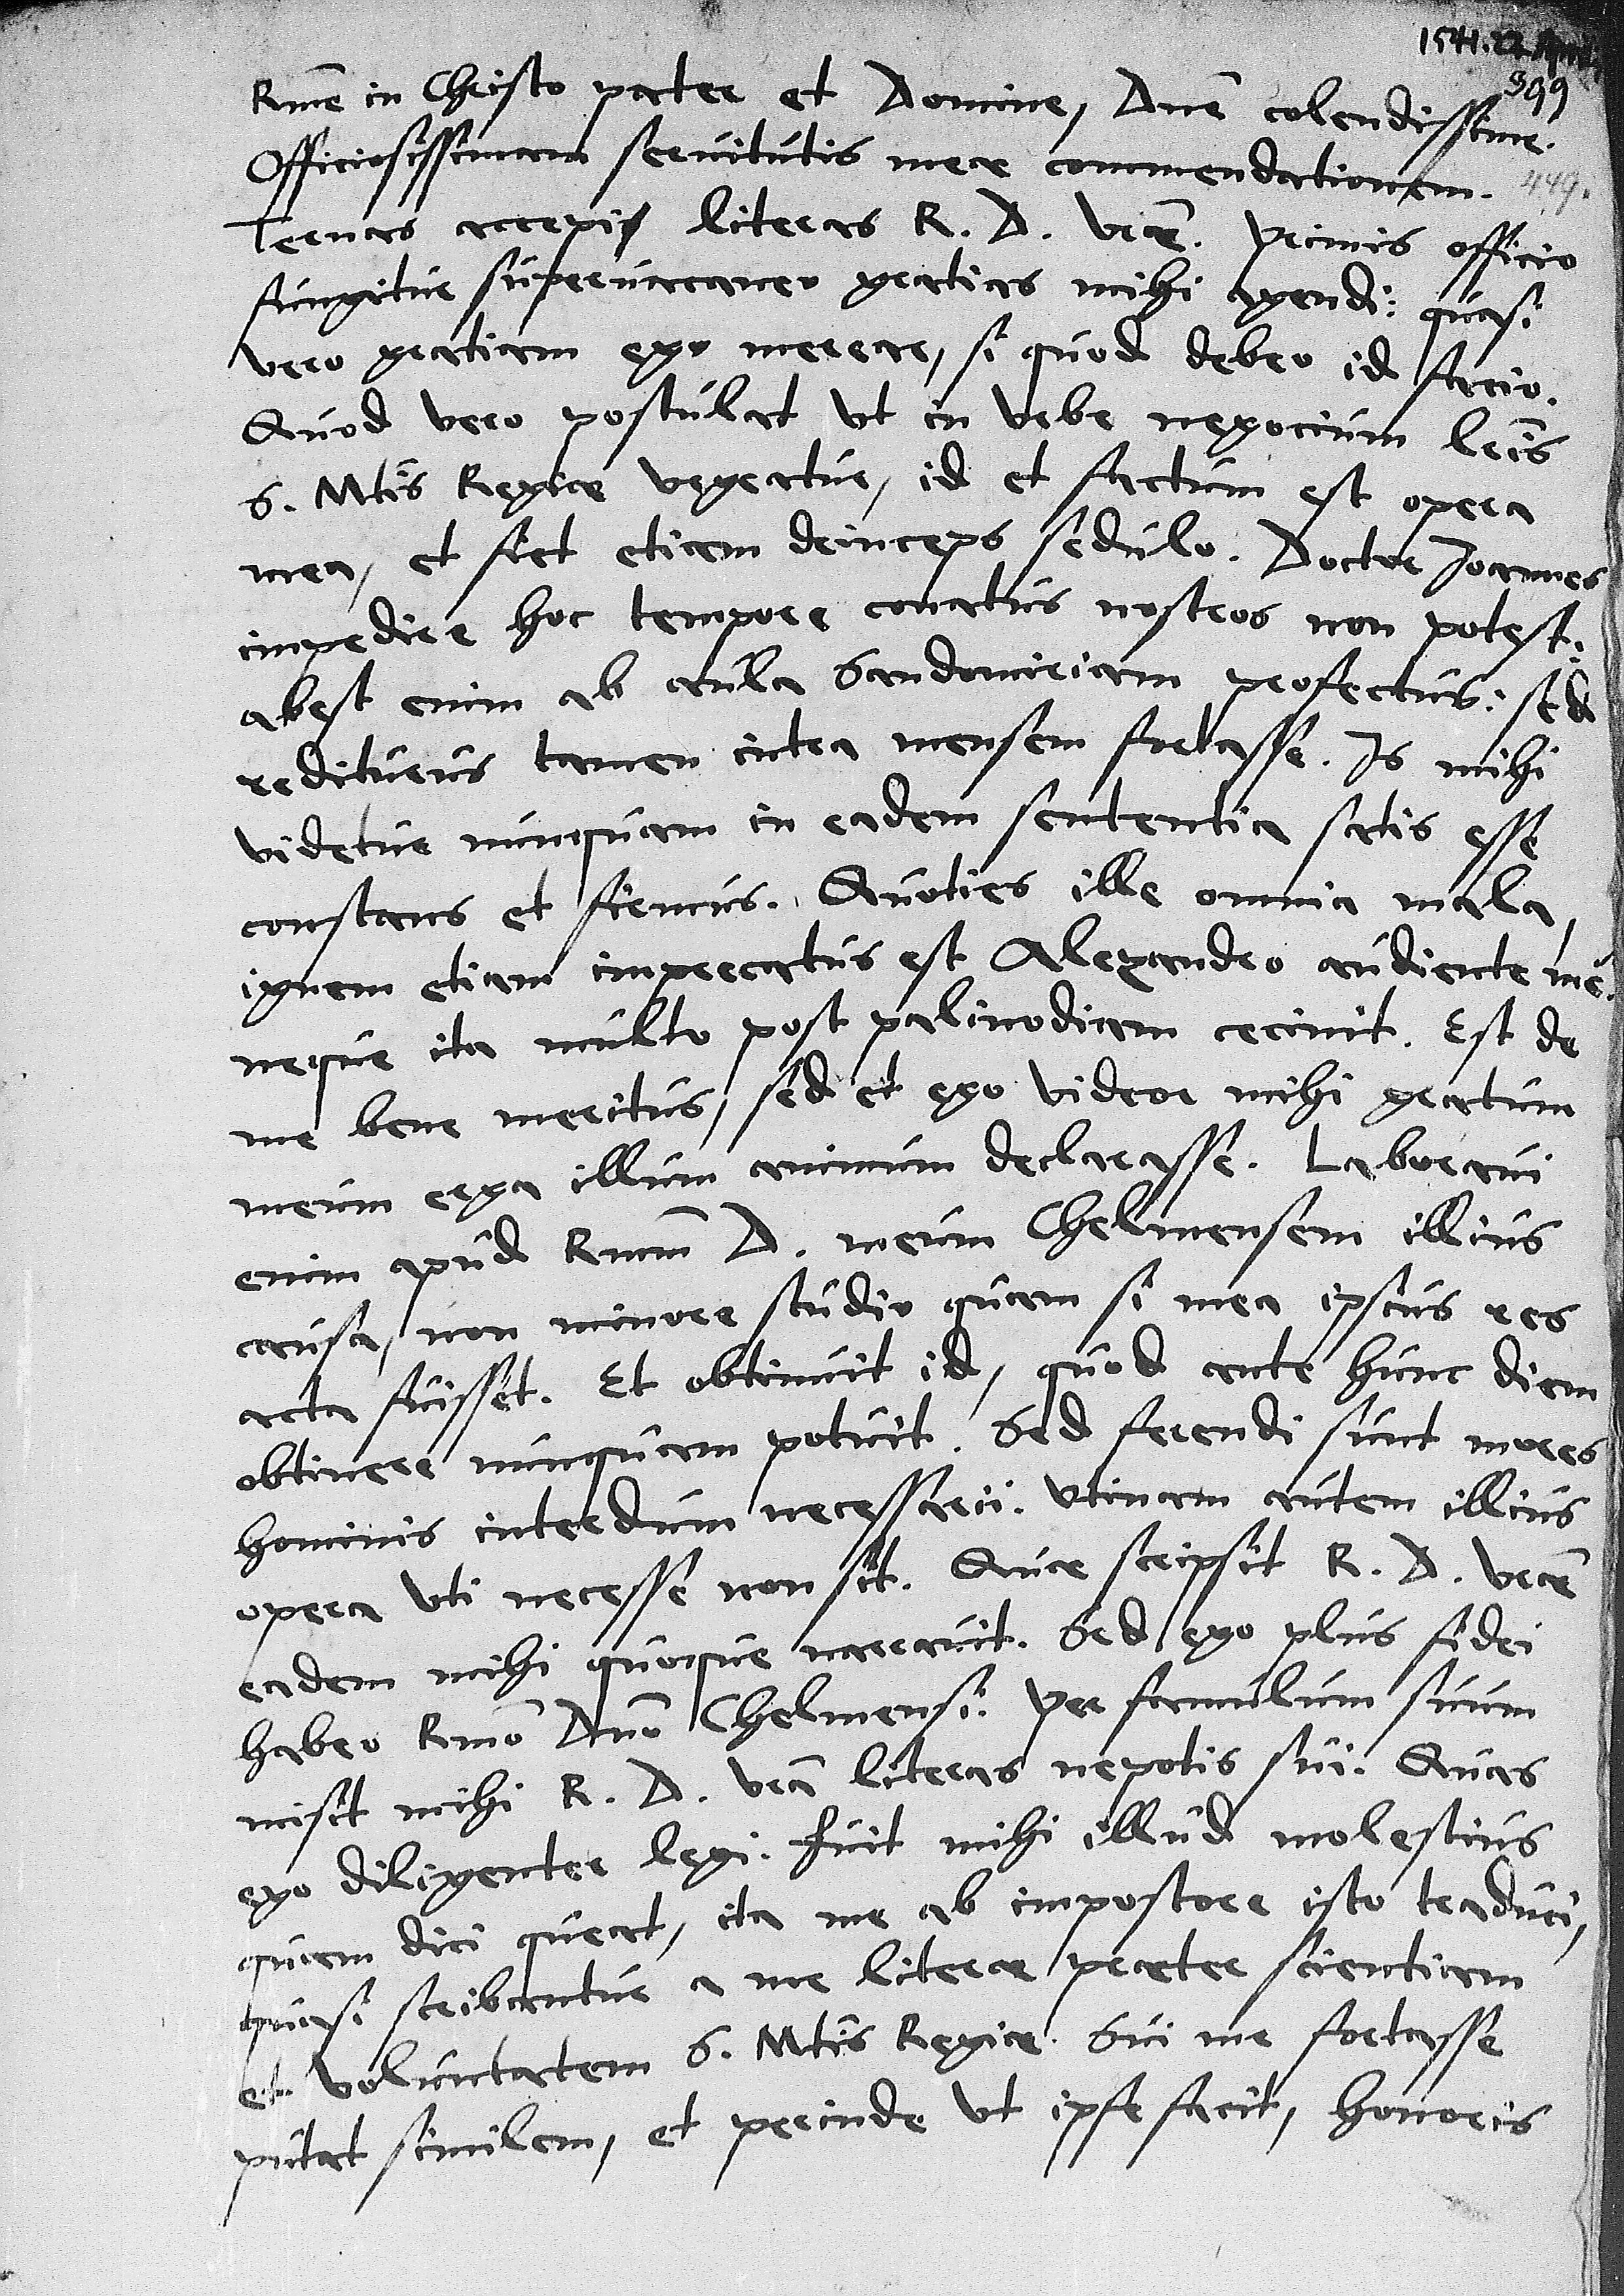 1541. 22 April
399
Rme in Christo pater et Domine, Dne colendissime.
Officiosissimam servitutis meae commendationem.
449.
Ternas accepi literas R. D. Vrae. Primis officio
fungitur supervacaneo gratias mihi agendi: quasi
vero gratiam ego merear, si quod debeo id facio.
Quod vero postulat ut in Urbe negocium leis
S. Mtis Regiae urgeatur, id et factum est opera
mea, et fiet etiam deinceps sedulo. Doctor Ioannes
impedire hoc tempore conatus nostros non potest:
abest enim ab aula Sandomiriam profectus: sed
rediturus tamen intra mensem fortasse. Is mihi
videtur nunquam in eadem sententia satis esse
constans et firmus. Quoties ille omnia mala,
ignem etiam imprecatus est Alexandro audiente me.
neque ita multo post palinodiam cecinit. Est de
me bene meritus, sed et ego videor mihi gratum
meum erga illum animum declarasse. Laboravi
enim apud Rmum D. meum Chelmensem illius
causa, non minore studio quam si mea ipsius res
acta fuisset. Et obtinuit id, quod ante hunc diem
obtinere nunquam potuit. Sed ferendi sunt mores
hominis interdum necessarii. Utinam autem illius
opera uti necesse non sit. Quae scripsit R. D. Vrae
eadem mihi quoque narravit. Sed ego plus fidei
habeo Rmo Dno Chelmensi. Per famulum suum
misit mihi R. D. Vra literas nepotis sui. Quas
ego diligenter legi. Fuit mihi illud molestius
quam dici queat, ita me ab impostore isto traduci,
quasi scribantur a me literae praeter scientiam
et voluntatem S. Mtis Regiae. Sui me fortasse
putat similem, et perinde ut ipse facit, honoris